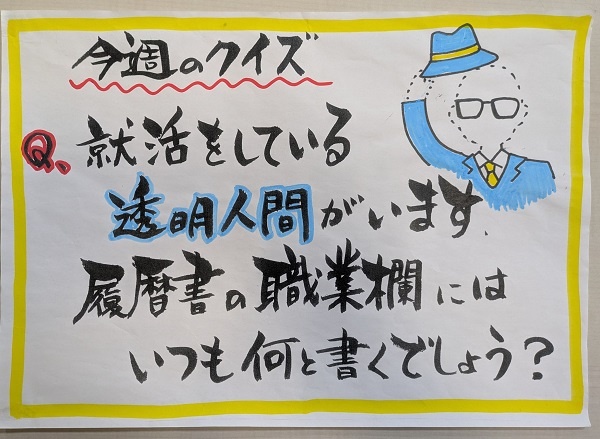 今週のクイズ
Q、就活をしている
透明人間がいます。
履暦書の職業欄には
いつも何と書くでしょう?